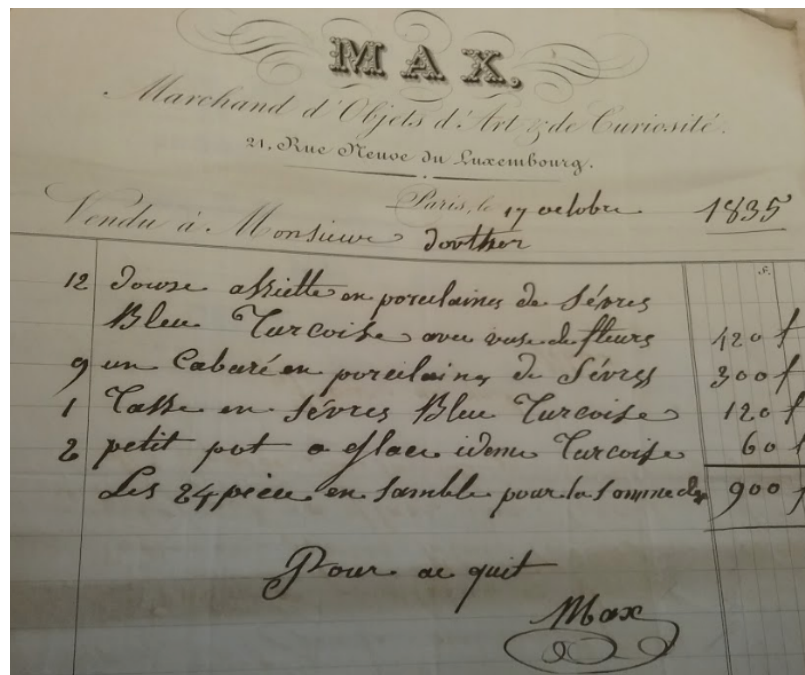 MAX,
Marchand d'Objets d'Art & de Curiosité.
21, Rue Neuve du Luxembourg.
Paris, le 17 octobre 1835
Vendu à Monsieur
f.
12 douse assiette en porcelaine de Sévres
Bleu Turcoise avec vase de fleurs 420 f
9 un Cabaré en porcelaine de Sévres 300 f
1 Tasse en Sévres Bleu Turcoise 120 f
2 petit pot a glace idem Turcoise 60 f
Les 24 piece en samble pour la somme de 900 f
Pour ac quit
Max